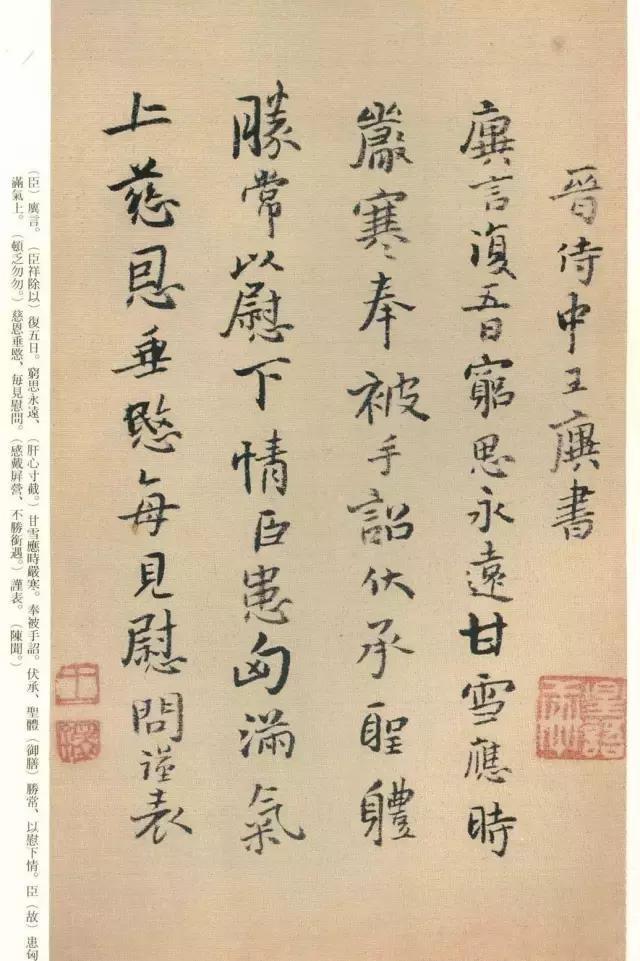 晉侍中王廙書
廙言復五日窮思永遠甘雪應時
嚴寒奉被手詔伏承聖體
勝常以慰下情臣患匈滿氣
上慈恩垂愍每見慰問謹表
（臣）廙言。（臣祥除以）復五日。窮思永遠、（肝心寸截。）甘雪應時嚴寒。奉被手詔。伏承、聖體（御膳）勝常、以慰下情。臣（故）患匈
滿氣上。（頓乏勿勿。）慈恩垂愍、每見慰問。（感戴屏營、不勝銜遇。）謹表。（陳聞。）